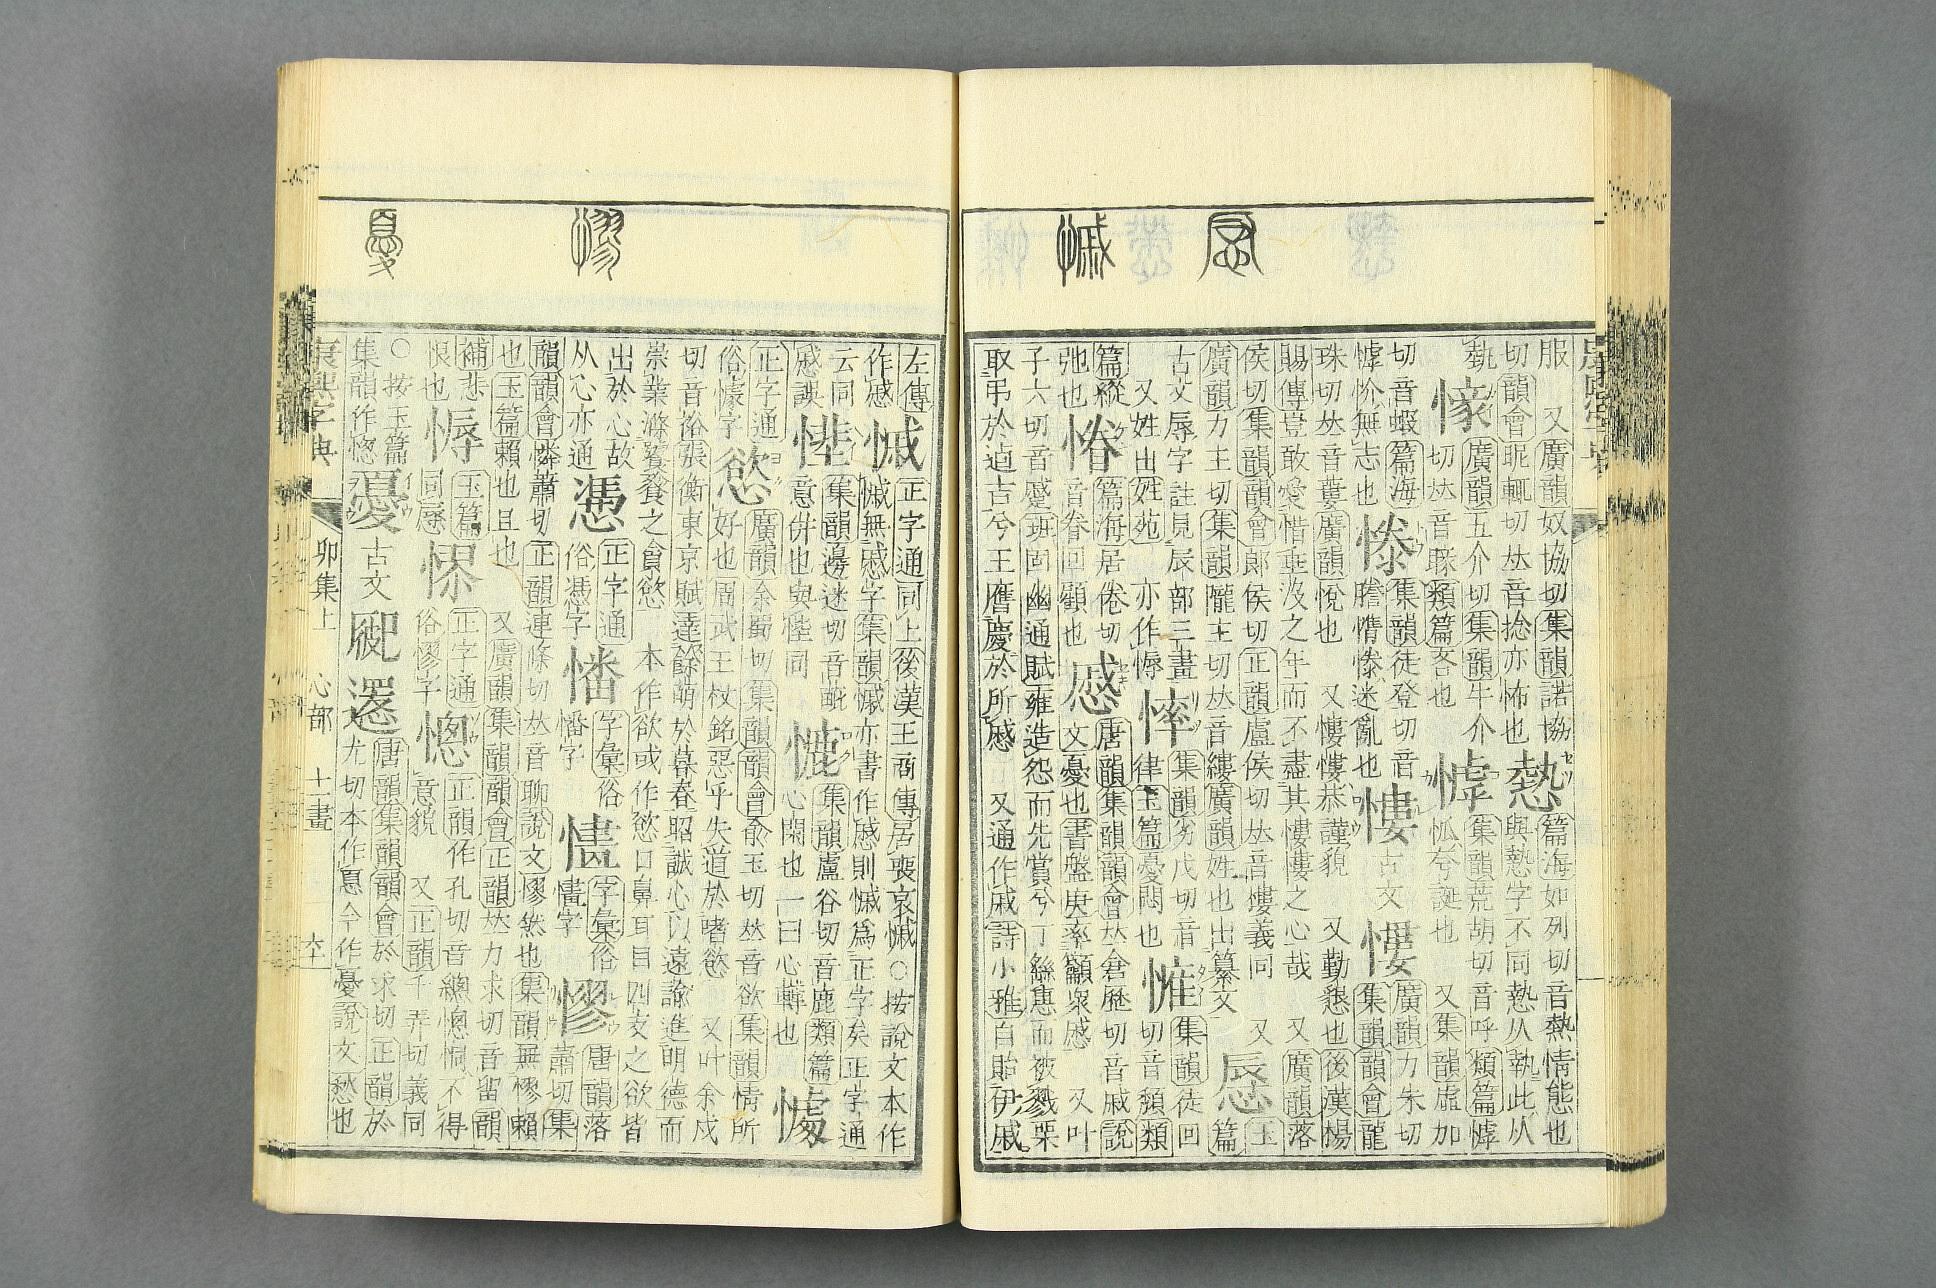 服　又廣韻奴協切集韻諾協
切韻會昵輒切𠀤音捻亦怖也 熱 篇海如列切音熱情態也
與熱字不同熱从執此从
埶 㥩 廣韻五介切集韻牛介
切𠀤音 類篇吝也 㦆 集韻荒胡切音呼類篇㦆
怤兮誕也　又集韻虛加
切音蝦篇海
㦆忦無志也 㦂 集韻徒登切音
騰惰㦂迷亂也 慺 古文 㥪 廣韻力朱切
集韻韻會龍
珠切𠀤音蔞廣韻悅也　又慺慺恭謹貌　又勤懇也後漢楊
賜傳豈敢愛惜垂沒之年而不盡其慺慺之心哉　又廣韻落
侯切集韻韻會郎侯切正韻盧侯切𠀤音慺義同　又玉
廣韻力主切集韻隴主切𠀤音縷廣韻姓也出纂文 㥲 篇
古文辱字註見辰部三畫
又姓出姓苑　亦作㦺 㥞 集韻劣戌切音
律玉篇憂悶也 慛 集韻徒回
切音穨類
篇縱
弛也 㥳 篇海居倦切
音眷回顧也 慼 唐韻集韻韻會𠀤倉歷切音戚說
文憂也書盤庚率籲衆慼　又叶
子六切音蹙班固幽通賦雍造怨而先賞兮丁繇惠而被戮栗
取弔於逌吉兮王膺慶於所慼　又通作戚詩小雅自貽伊戚
左傳
作慼 慽 正字通同上後漢王商傳居喪哀慽○按說文本作
慽無慼字集韻慽亦書作慼則慽爲正字矣正字通
云同
慼誤 㥰 集韻邊迷切音䡟
意併也與悂同 㦇 集韻盧谷切音鹿類篇
心閑也一曰心轉也 㦀
正字通
俗懅字 慾 廣韻余蜀切集韻韻會俞玉切𠀤音欲集韻情所
好也周武王杖銘惡乎失道於嗜慾　又叶余戍
切音裕張衡東京賦達餘萌於暮春昭誠心以遠諭進明德而
崇業滌饕餮之貪慾　本作欲或作慾口鼻耳目四支之欲皆
出於心故
从心亦通 慿 正字通
俗憑字 㦖 字彙俗
憣字 㦎 字彙俗
㦎字 憀 唐韻落
蕭切集
韻韻會憐蕭切正韻連條切𠀤音聊說文憀然也集韻無憀賴
也玉篇賴也且也　又廣韻集韻韻會正韻𠀤力求切音留韻
補悲
恨也 㦺 玉篇
同㥽 㥛 正字通
俗憀字 憁 正韻作孔切音總憁恫不得
意貌　又正韻千弄切義同
○按玉篇
集韻作愡 憂 古文 𠪕 𨗫 唐韻集韻韻會於求切正韻於
尤切本作㥑今作憂說文愁也
康熙字典　卯集上　心部　十一畫